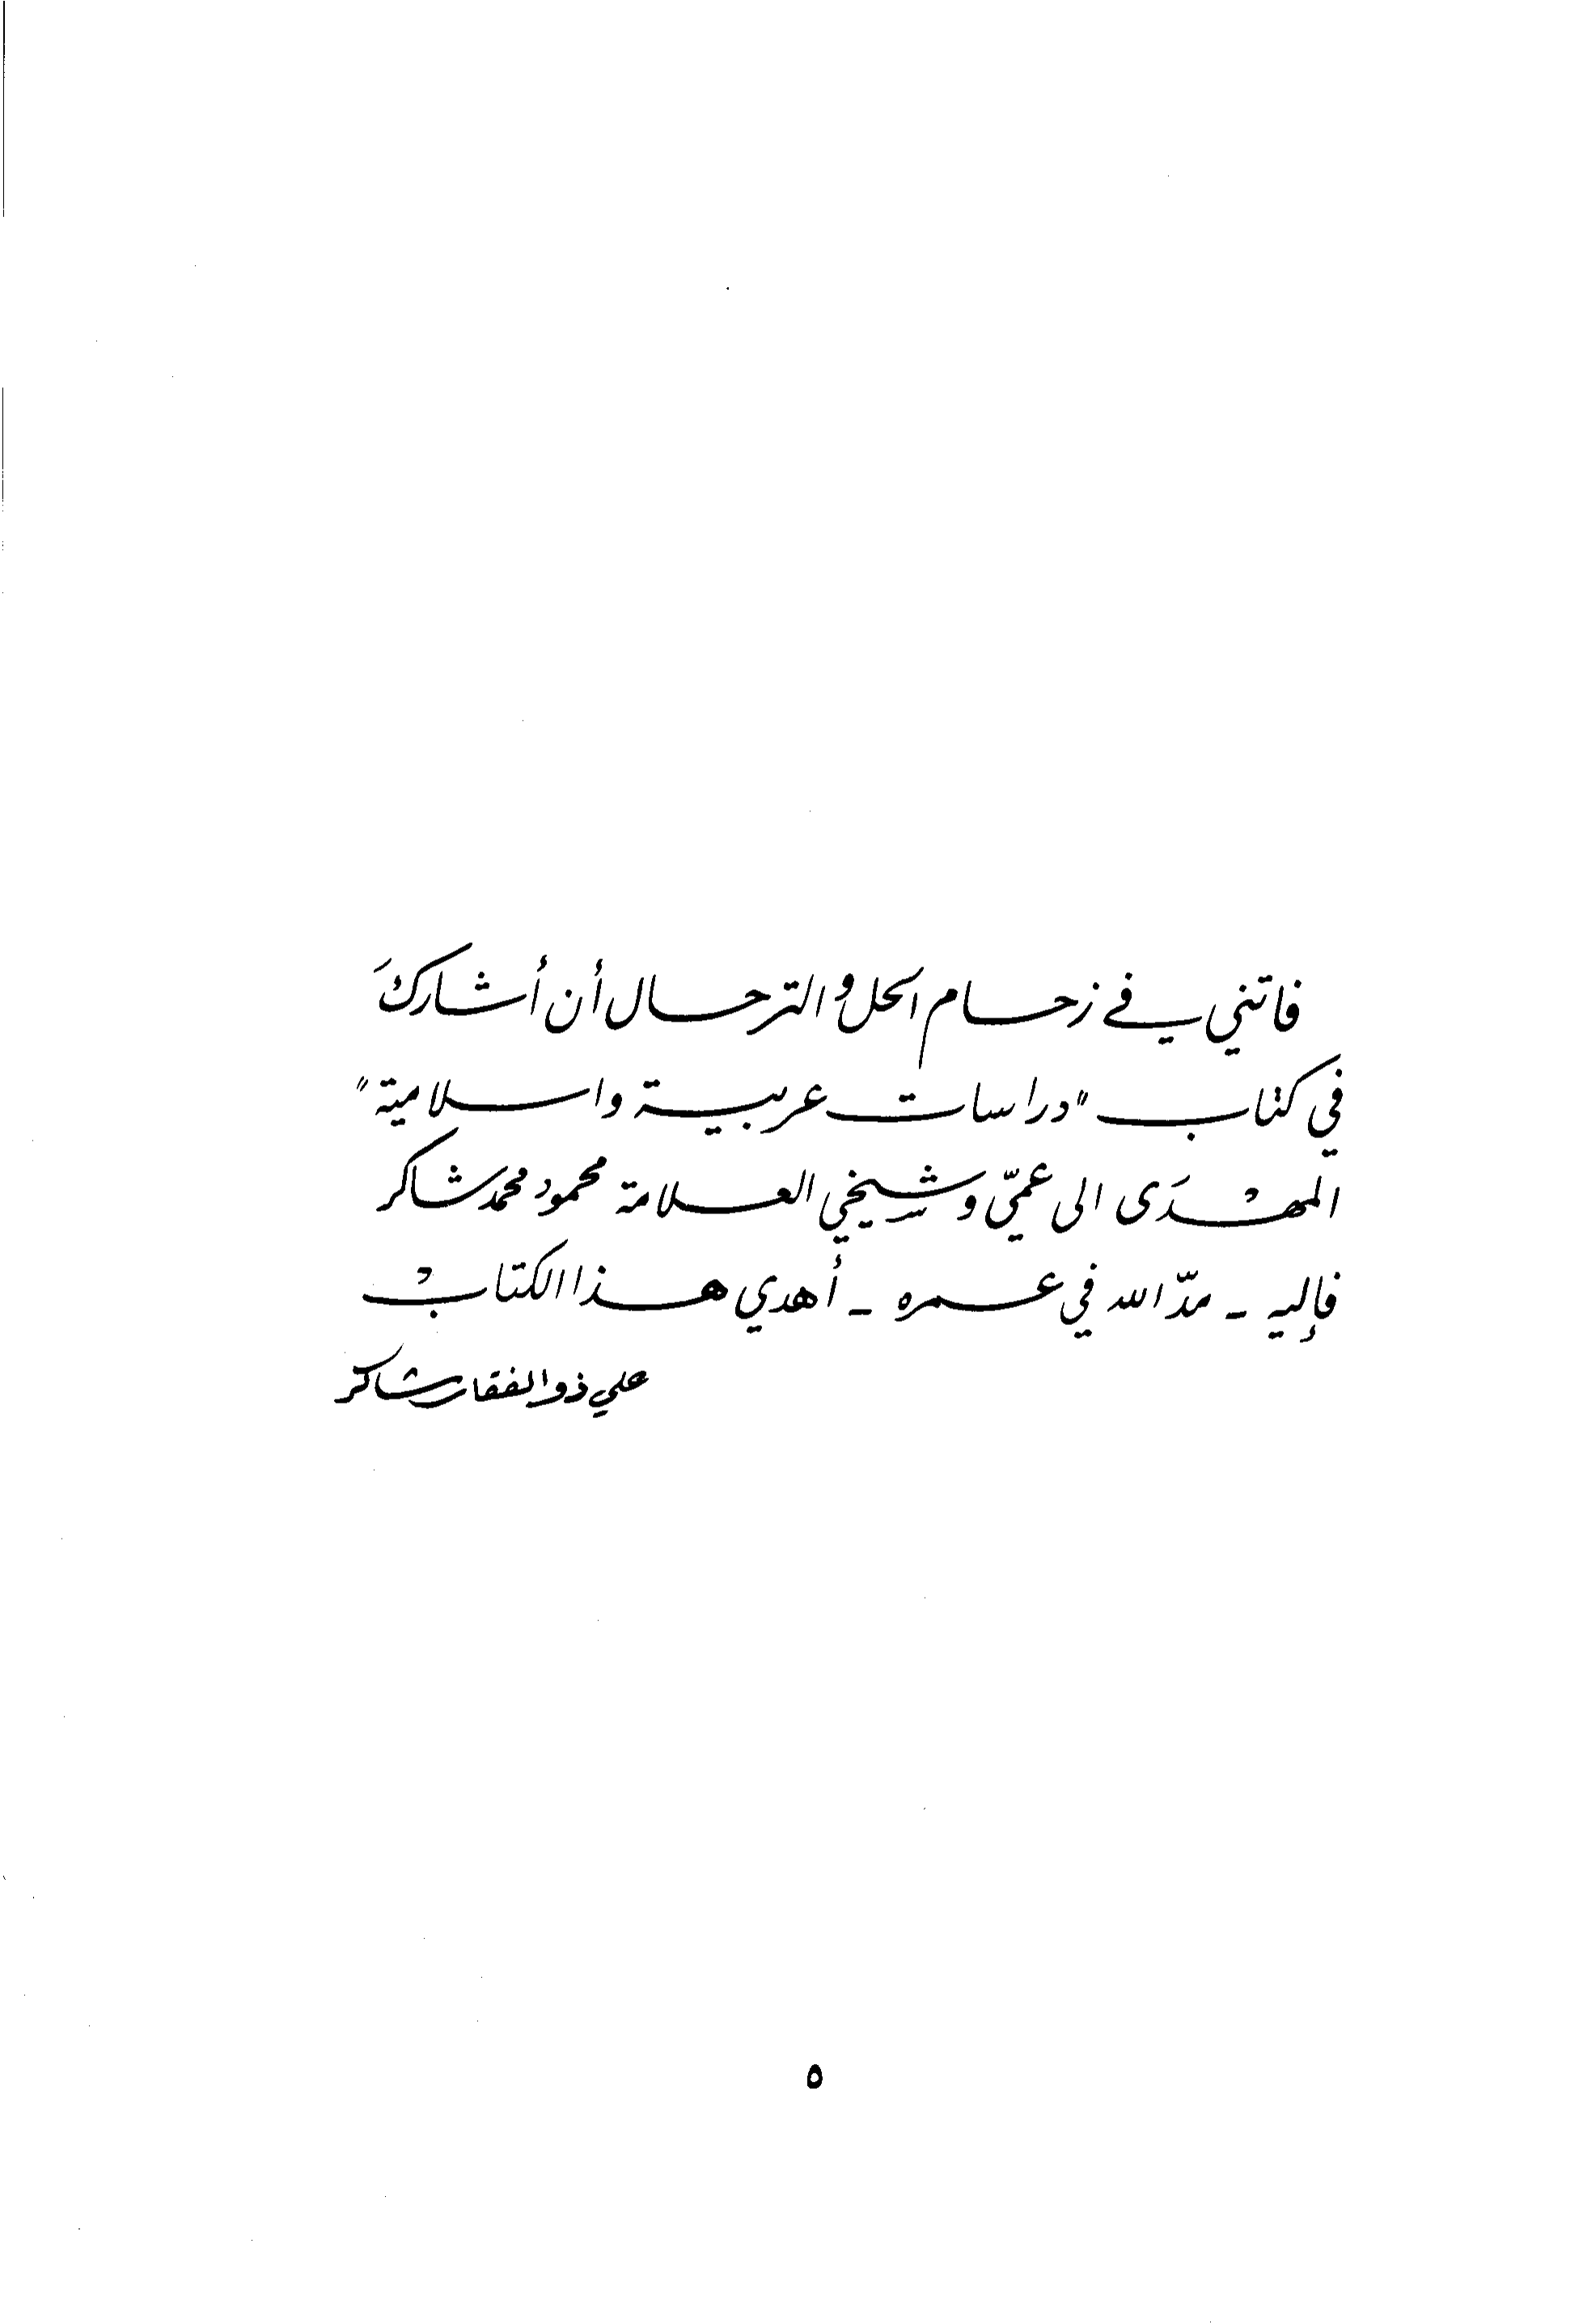 فاتني في زحام الحل والترحال أن أشاركَ
في كتاب "دراسات عربية واسلامية"
المهدَى الى عميّ وشيخي العلامة محمود محمد شاكر
فإليه - مدّ الله في عمره - أهدي هذا الكتاب
علي ذو الفقار شاكر
٥